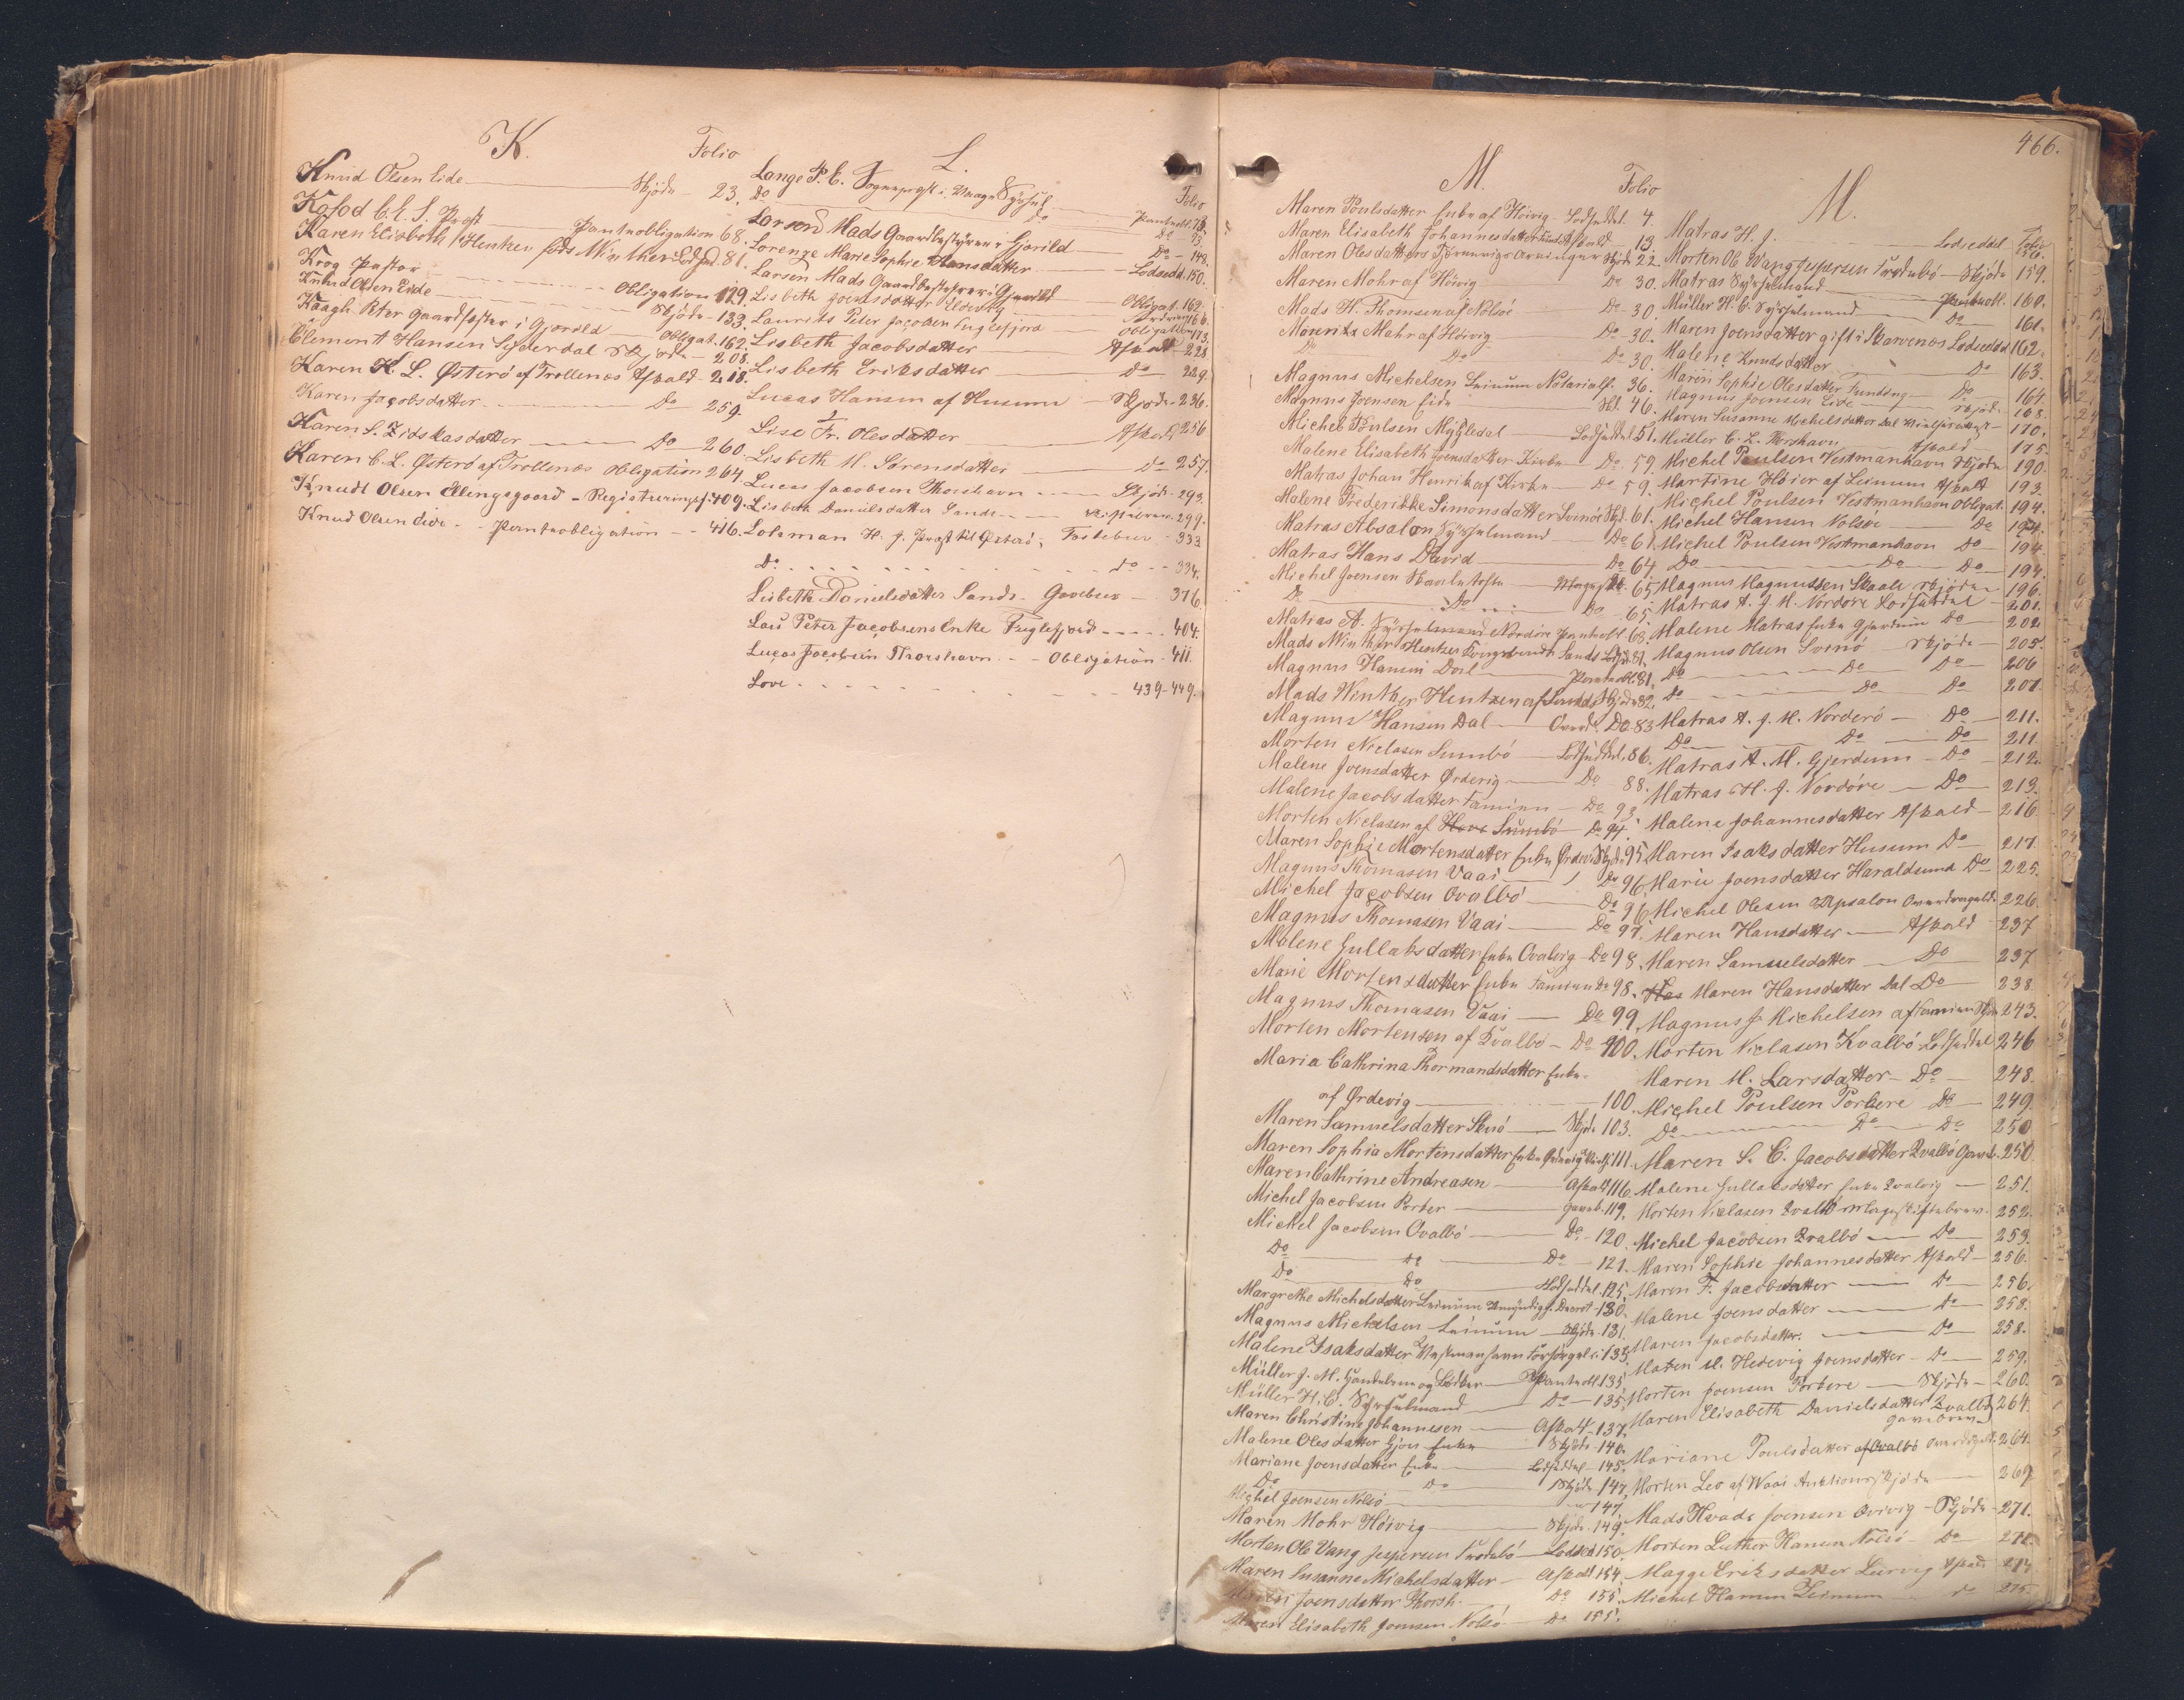 K.
Folio
Knud Olsen Eide Skjöde 23.
Kofod C. E. S. Prost Panteobligation 68.
Karen Elisbeth Hentzen föds Winther Lodsed. 81.
Krog Pastor Obligation 129.
Knud Olsen Eide Skjöde 133.
Kaagh Peter Gaardfæster i Gjorild Obligat. 162.
Clement Hansen Skjöde 208.
Karen K. L. Østerö af Trollenæs Afkald 218.
Karen Jacobsdatter Do 259.
Karen S. Zidskasdatter Do 260.
Karen C. L. Østerö af Trollenæs Obligation 264.
Knudt Olsen Ellingsgaard - 409.
Knud Olsen Eide - - Panteobligation - - 416.
L.
Folio
Lange P. E. Sognepræst i Vaagø Sysjel
Do Do
Larsen Mads Gaardbestyrer i Gjorild Do 148.
Lorenze Marie Sophie Hansdatter Lodsedd. 150.
Larsen Mads Gaardbestyrer i Gjorild Obligat. 162.
Lisbeth Joensdatter
Laurits Peter Jacobsen Fuglefjord Obligation 173.
Lisbeth Jacobsdatter Afkald 228
Lisbeth Eriksdatter Do 229.
Lucas Hansen af Husum Skjöde 236.
Lise Fr. Olesdatter Afkald 256
Lisbeth M. Sörensdatter Do 257.
Lucas Jacobsen Thorshavn Skjöde 293.
Lisbeth Danielsdatter Sande 299.
Lohman H. J. Prost til Østerö, 333
Do Do 334.
Lisbeth Danielsdatter Sande - Gavebrev 376.
Lars Peter Jacobsens Enke Fuglefjord 404.
Lucas Jacobsen Thorshavn - - Obligation 411.
Love 439-449.
466.
M.
Folio
Maren Poulsdatter Enke af Höivig Lodseddel 4.
Maren Elisabeth Johannesdatter Afkald 13.
Maren Olesdatters Arvinger Skjöde 22.
Maren Mohr af Höivig Do 30.
Mads H. Thomsen af Nolsö Do 30.
Mouritz Mohr af Höivig Do 30.
Do Do Do 30.
Magnus Michelsen Leinum Notarialf. 36.
Magnus Joensen Eide Skj. 46.
Michel Poulsen Mygledal Lodseddel 51.
Malene Elisabeth Joensdatter Kirke Do 59.
Matras Johan Henrik af Kirke Do 59.
Malene Frederikke Simonsdatter Svinöe Skjd. 61.
Matras Absalon Sysselmand Do 61.
Matras Hans David Do 64
Michel Joensen 65
Do Do Do 65.
Matras A. Sysselmand Nordöre Panteobl. 68.
Mads Winther Hentzen Sands Lodsd. 81.
Magnus Hansen Dal Panteobl. 81.
Mads Winther Hentzen af Sands Skjöde 82.
Magnus Hansen Dal Overd. Do 83
Morten Niclasen Sumbö Lodseddel 86.
Malene Joensdatter Ørderig Do 88.
Malene Jacobsdatter Famien Do 93
Morten Niclasen af Hove Sumbö Do 94.
Maren Sophie Mortensdatter Enke Ørdevig Skjöde 95
Magnus Thomasen Vaai Do 96
Michel Jacobsen Qvalbö Do 96
Magnus Thomasen Vaai Do 97.
Malene Gullaksdatter Enke Qvalvig Do 98.
Marie Mortensdatter Enke Famien Do 98.
Magnus Thomasen Vaai Do 99
Morten Mortensen af Qvalbö Do 100.
Maria Cathrina Thormandsdatter Enke
af Ørdevig 100.
Maren Samuelsdatter Skuö Skjöde 103.
Maren Sophia Mortensdatter Enke Ørdevig 111.
Maren Cathrine Andreasen Afkald 116
Michel Jacobsen Porker Gaveb. 119.
Michel Jacobsen Qvalbö Do 120
Do Do Do 121.
Do Do Lodseddel. 125
Margrethe Michelsdatter Leinum Decret 130.
Magnus Michelsen Leinum Skjöde 131.
Malene Isaksdatter Vestmanhavn 135.
Müller J. M. Panteobl. 135
Müller H. C. Sysselmand Do 135.
Maren Christine Johannesen Afkald 137.
Malene Olesdatter Gjov Enke Skjöde 140.
Mariane Joensdatter Enke Lodseddel 145.
Do Do Skjöde 147.
Michel Joensen Nolsö 147.
Maren Mohr Höivig Skjöde 149.
Morten Ole Vang Jespersen Frodebö Lodsed 150.
Maren Susanne Michelsdatter Afkald 154.
Joensdatter Thorsh. Do 155.
Maren Elisabeth Joensen Nolsö Do 155.
M.
Folio
Matras H. J. Lodseddel 156.
Morten Ole Wang Jespersen Frodebö Skjöde 159.
Matras Sysselmand Panteobl. 160.
Müller H. C. Sysselmand Do 161.
Maren Joensdatter gift i Skarvenæs Lodseddel 162.
Malene Knudsdatter Do 163.
Maren Sophie Olesdatter Funding Do 164.
Magnus Joensen Eide Skjöde 168.
Maren Susanne Michelsdatter Dal 170.
Müller C. L. Thorshavn Afkald 175.
Michel Poulsen Vestmanhavn Skjöde 190.
Martine Höier af Leinum Afkald 193.
Michel Poulsen Vestmanhavn Obligat. 194.
Michel Hansen Nolsöe Do 194.
Michel Poulsen Vestmanhavn Do 194.
Do Do Do 194.
Magnus Magnussen Skaale Skjöde 196.
Matras A. J. M. Nordöre Lodseddel 201.
Malene Matras Enke Gjerdum Do 202.
Magnus Olsen Svinö Skjöde 205.
Do Do Do 206
Do Do Do 207.
Matras A. J. M. Norderö Do 211.
Do Do Do 211
Matras A. M. Gjerdum Do 212.
Matras H. J. Nordöre Do 213.
Malene Johannesdatter Afkald 216
Maren Isaksdatter Husum Do 217
Marie Joensdatter Haraldsund Do 225.
Michel Olesen Apsalon Overdragelse 226.
Maren Hansdatter Afkald 237
Maren Samuelsdatter Do 237
Maren Hansdatter Dal Do 238
Magnus J. Michelsen af Famien Skjöde 243.
Morten Niclasen Kvalbö Lodseddel 246
Maren M. Larsdatter Do 248.
Michel Poulsen Porkere Do 249.
Do Do Do 250
Maren S. C. Jacobsdatter Qvalbö Gaveb. 250
Malene Gullaksdatter Enke Qvalvig 251.
Morten Niclasen Qvalbö Mageskiftebrev 252.
Michel Jacobsen Qvalbö Do 253.
Maren Sophie Johannesdatter Afkald 256.
Maren F. Jacobsdatter Do 256.
Malene Joensdatter Do 258.
Maren Jacobsdatter. Do 258.
Maren M. Hedevig Joensdatter Do 259.
Morten Joensen Porkere Skjöde 260.
Maren Elisabeth Danielsdatter Qvalbö 264.
Gavebrev
Mariane Poulsdatter af Qvalbö 264.
Morten Leo af Waai Auktionsskjöde 269
Mads Joensen Qvivig Skjöde 271.
Morten Luther Hansen Nolsö Do 272.
Magge Eriksdatter Leirvig Afkald 274
Michel Hansen Leinum do 275.